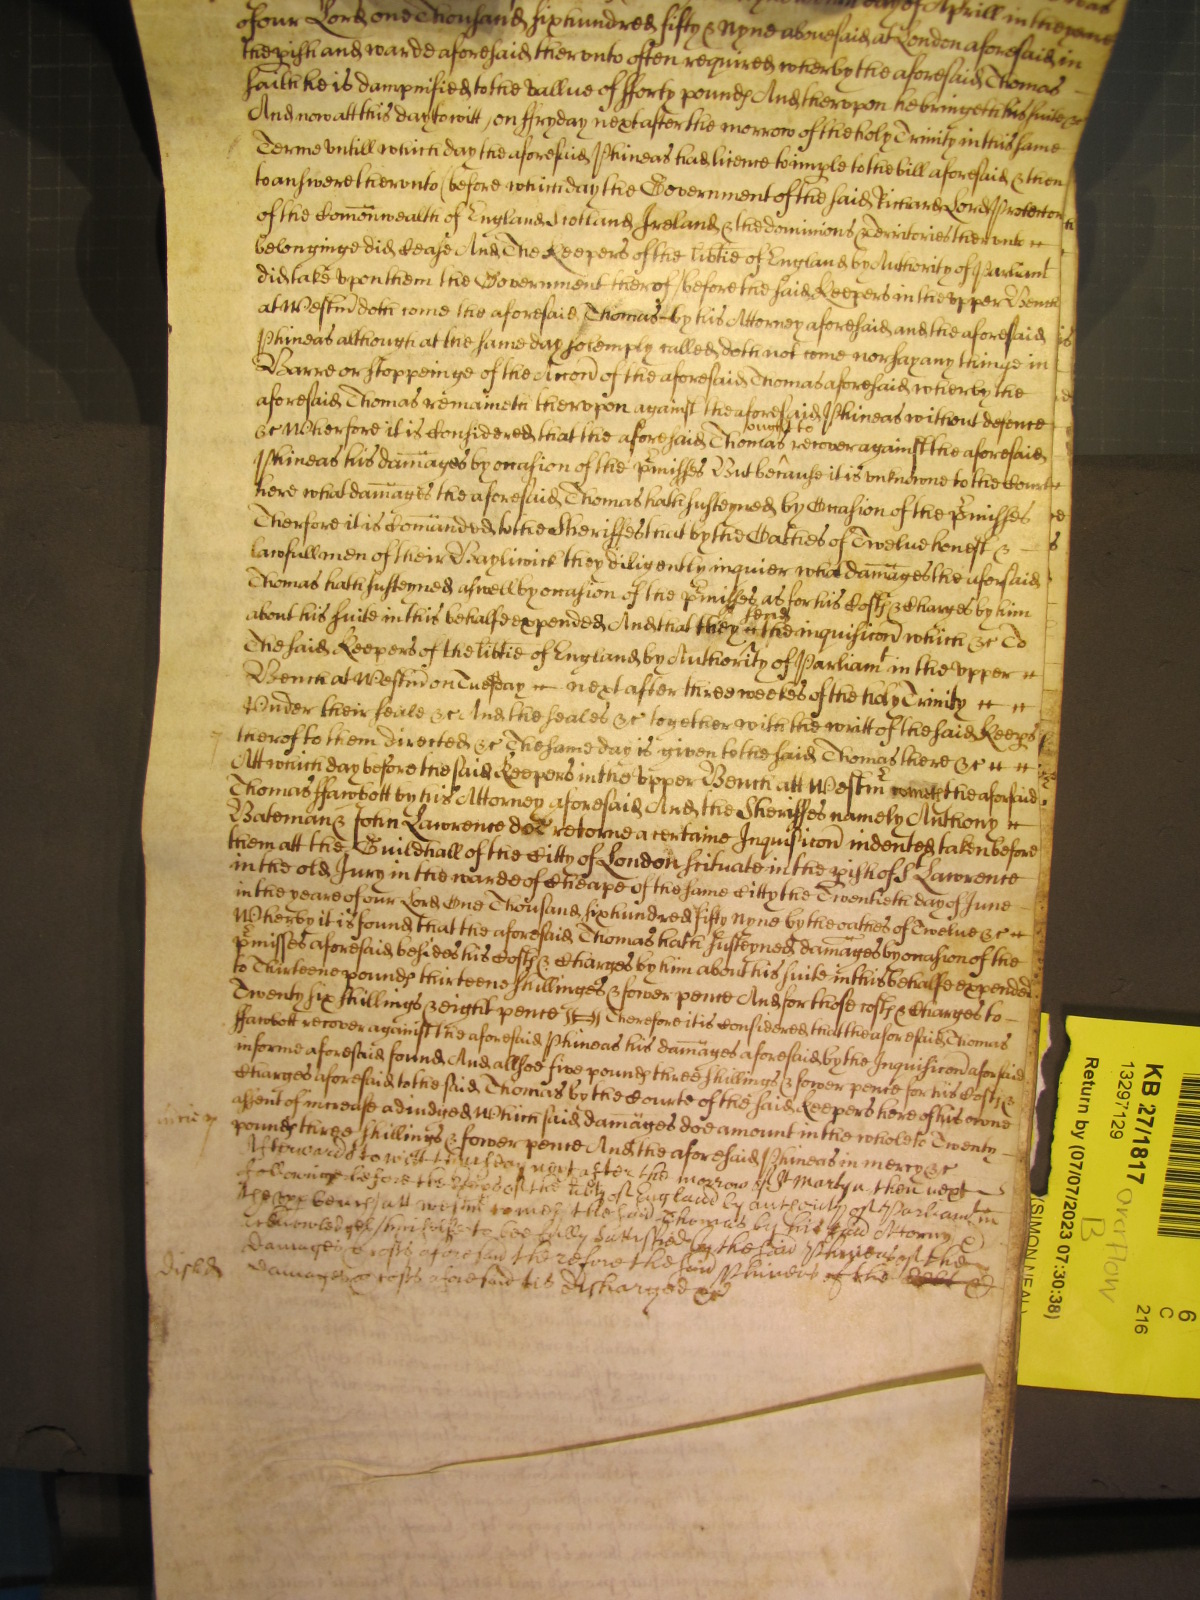 day of Aprill in the yeare
of our Lord one Thousand six hundred fifty & Nyne abovesaid at London aforesaid in
the pish and warde aforesaid therunto often required wherby the aforesaid Thomas
saith he is dampnified to the vallue of fforty pounds And therupon he bringeth his suite &c
And now att this day to witt, on ffryday next after the morrow of the holy Trinity in this same
Terme untill which day the aforesaid Phineas had licence to imple to the bill aforesaid & then
to answere therunto (before which day the Government of the said Richard Lord Protector
of the Comonwealth of England Scotland Ireland & the dominions & Territories therunto
belonginge did Cease And The Keepers of the libtie of England by Authority of Parliamt
did take upon them the Government therof) before the said Keepers in the upper Bench
at Westm doth come the aforesaid Thomas by his Attorney aforesaid and the aforesaid
Phineas although at the same day solemply called doth not come nor say any thinge in
Barre or stoppeinge of the Accon of the aforesaid Thomas aforesaid wherby the
aforesaid Thomas remaineth therupon against the aforesaid Phineas without defence
&c Wherfore it is Considered that the aforesaid Thomas ought to recover against the aforesaid
Phineas his damages by occasion of the pmisses But because it is unknowne to the Court
here what damages the aforesaid Thomas hath susteyned by Occasion of the pmisses
Therfore it is Comanded to the Sheriffes that by the Oathes of Twelve honest &
lawfull men of their Bayliwick they diligently inquier what damages the aforsaid
Thomas hath susteyned aswell by occasion of the pmisses as for his Costs & Charges by him
about his suite in this behalfe expended And that they send the inquisicon which &c To
The said Keepers of the libtie of England by Authority of Parliamt in the Upper
Bench at Westm on Tuesday next after three weekes of the holy Trinity
Under their seale &c And the seales &c together with the writt of the said Keeps
therof to them directed &c The same day is given to the said Thomas there &c
Att which day before the said Keepers in the Upper Bench att Westmr cometh the aforsaid
Thomas ffawbott by his Attorney aforesaid And the Sheriffes namely Anthony
Bateman & John Lawrence doe retorne a certaine Inquisicon indented taken before
them att the Guildhall of the Citty of London scituate in the pish of St Lawrence
in the old Jury in the warde of Cheape of the same Citty the Twentieth day of June
in the yeare of our Lord One Thousand six hundred fifty Nyne by the oathes of Twelve &c
Wherby it is found that the aforesaid Thomas hath susteyned damages by occasion of the
pmisses aforesaid besides his Costs & Charges by him about his suite in this behalfe expended
to Thirteene pounds thirteene shillinges & fower pence And for those costs & Charges to
Twenty six shillings & eight pence Therefore it is Considered that the aforesaid Thomas
ffawbott recover against the aforesaid Phineas his damages aforesaid by the Inquisicon aforsaid
in forme aforesaid found And allsoe five pounds three shillings & fower pence for his Costs &
Charges aforesaid to the said Thomas by the Courte of the said Keepers here of his owne
assent of increase adiudged Which said damages doe amount in the whole to Twenty
pounds three shillings & fower pence And the aforesaid Phineas in mercy &c
Afterwards to witt next after the morrow of St Martyn then next
followinge before the Keeps of the libty of England by authority of Parliamt in
the upp bench att Westmr comes the said Thomas by his said Attorny &
acknowledgeth himselfe to bee fully satisfied by the said Phineas of the
damages & costs aforesaid therefore the said Phineas of the
damages & costs aforesaid is discharged &c
dischd
KB 27/1817
13297129
Return by (07/07/2023 07:30:38)
(SIMON NEAL)
overflow
B
6
C
216